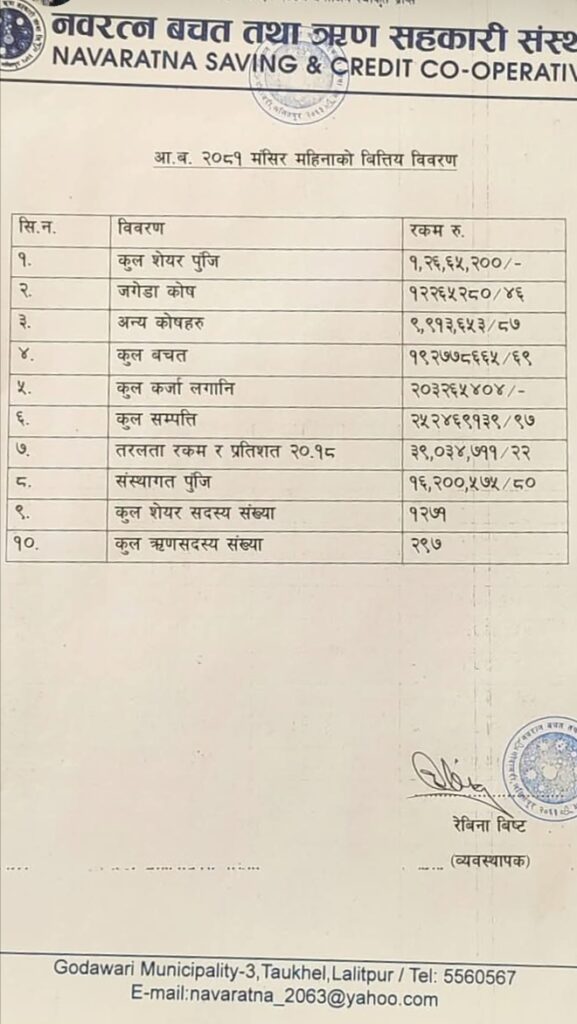 नवरत्न बचत तथा ऋण सहकारी संस्थ
NAVARATNA SAVING & CREDIT CO-OPERATIV
आ.ब. २०८१ मंसिर महिनाको बित्तिय बिवरण
सि.न. बिवरण रकम रु.
१. कुल शेयर पुंजि १,२६,६५,२००/-
२. जगेडा कोष १२२६५२८०/४६
३. अन्य कोषहरु ९,९१३,६५३/८७
४. कुल बचत १९२७७८६६५/६९
५. कुल कर्जा लगानि २०३२६५४०४/-
६. कुल सम्पत्ति २५२४६९१३९/९७
७. तरलता रकम र प्रतिशत २०.१८ ३९,०३४,७११/२२
८. संस्थागत पुंजि १६,२००,५७५/८०
९. कुल शेयर सदस्य संख्या १२७१
१०. कुल ऋणसदस्य संख्या २९७
रेबिना बिष्ट
(व्यवस्थापक)
Godawari Municipality-3,Taukhel,Lalitpur / Tel: 5560567
E-mail:navaratna_2063@yahoo.com